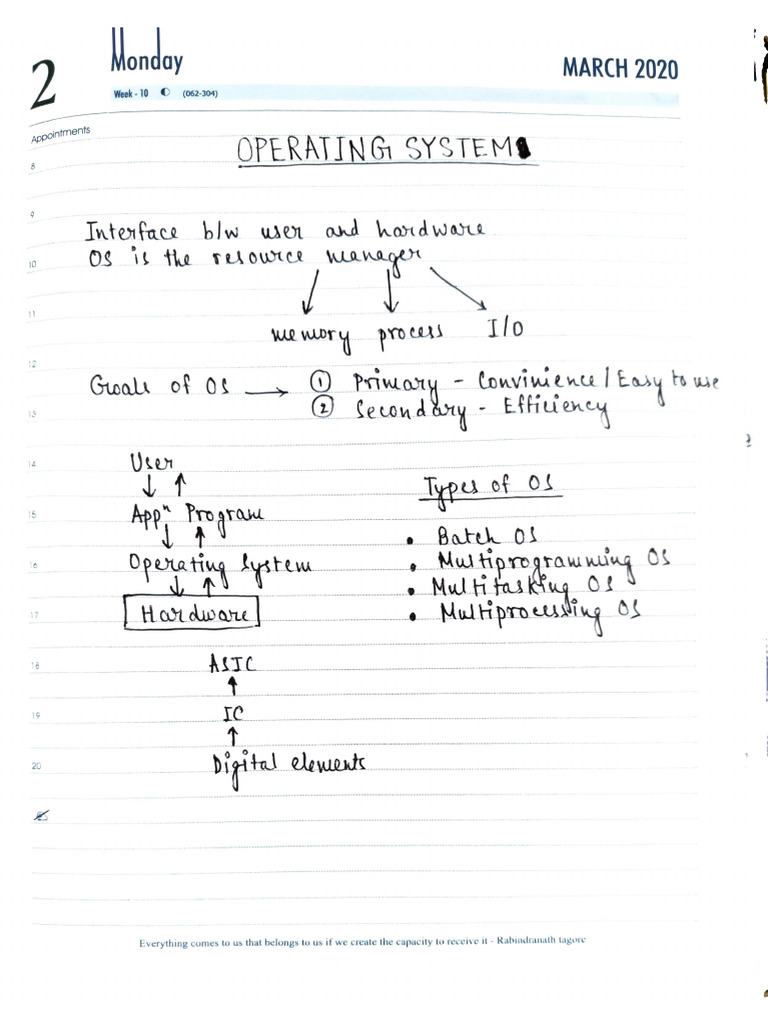 2
Monday
MARCH 2020
Week - 10 (062-304)
Appointments
OPERATING SYSTEM
8
9
Interface b/w user and hardware
10
OS is the resource manager
11
memory process I/O
12
Goals of OS → ① Primary - Convinience / Easy to use
13
② Secondary - Efficiency
14
User
↓ ↑
Types of OS
15
Appⁿ Program
↓ ↑
• Batch OS
16
Operating System
• Multiprogramming OS
↓ ↑
• Multitasking OS
17
Hardware
• Multiprocessing OS
18
ASIC
↑
19
IC
↑
20
Digital elements
Everything comes to us that belongs to us if we create the capacity to receive it - Rabindranath tagore